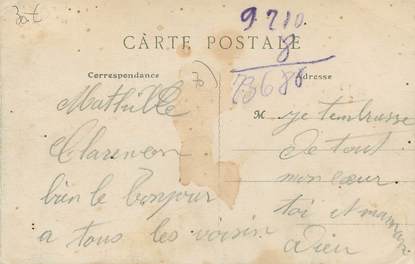 3at
9 210
8
CÀRTE POSTALE
73680
Correspondance
70
Adresse
Mathilde
Clarencon
bien le bonjour
a tous les voisin
M je tembrasse
de tout
mon cœur
toi et maman
adieu